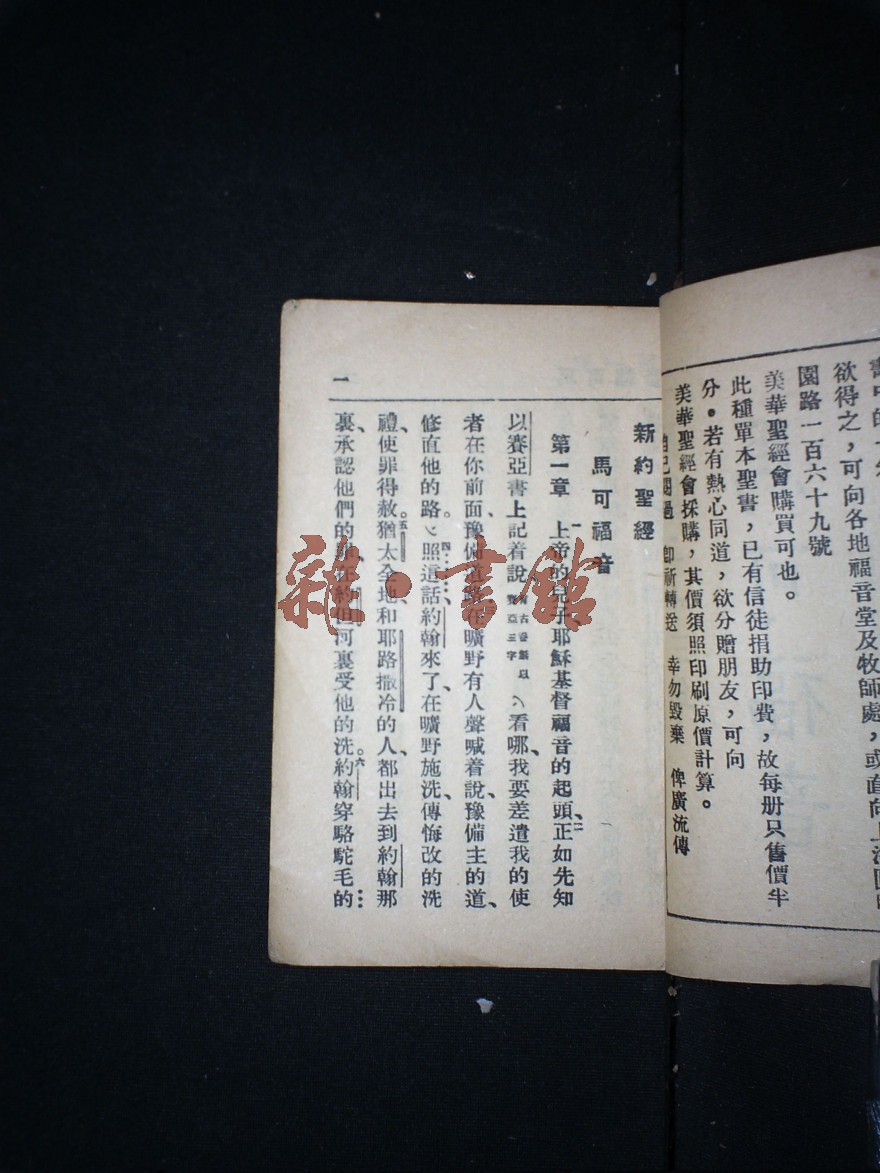 欲得之，可向各地福音堂及牧師處，或直向上海圓明
園路一百六十九號
美華聖經會購買可也。
此種單本聖書，已有信徒捐助印費，故每册只售價半
分。若有熱心同道，欲分贈朋友，可向
美華聖經會採購，其價須照印刷原價計算。
自己閱過 即祈轉送 幸勿毀棄 俾廣流傳
新約聖經
馬可福音
第一章 一上帝的兒子、耶穌基督福音的起頭、二正如先知
以賽亞書上記着說 有古卷無以賽亞三字 看哪、我要差遣我的使
者在你前面、豫備道路、在曠野有人聲喊着說、豫備主的道、
修直他的路。四照這話、約翰來了、在曠野施洗、傳悔改的洗
禮、使罪得赦。五猶太全地、和耶路撒冷的人、都出去到約翰那
裏、承認他們的罪、在約但河裏受他的洗。六約翰穿駱駝毛的
一
雜·書館